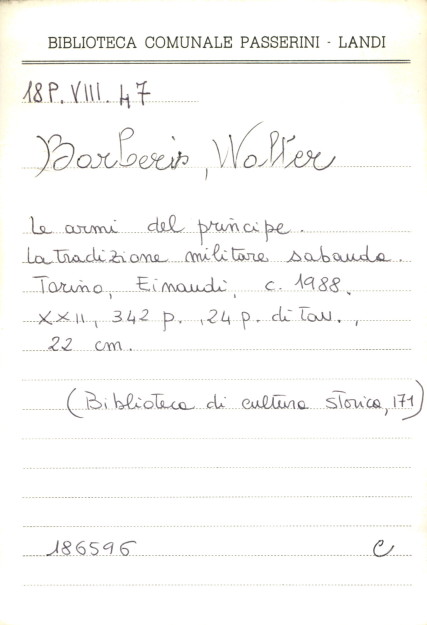 BIBLIOTECA COMUNALE PASSERINI - LANDI
18 P. VIII. 47
Barberis, Walter
Le armi del principe.
La tradizione militare sabauda.
Torino, Einaudi, c. 1988.
XXII, 342 p., 24 p. di tav.,
22 cm.
(Biblioteca di cultura storica, 171)
186596 C